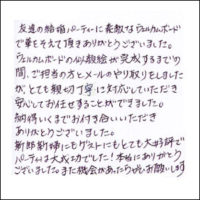 友達の結婚パーティーに素敵なウェルカムボード
で華を添えて頂きありがとうございました。
ウェルカムボードの似顔絵が完成するまでの
間、ご担当の方とメールのやり取りをしました
が、とても親切丁寧に対応していただき
安心してお任せすることができました。
納得いくまでお付き合いいただき
ありがとうございました。
新郎新婦にもゲストにもとても大好評で
パーティは大成功でした！本当にありがとう
ございました。また機会があったらぜひお願いします